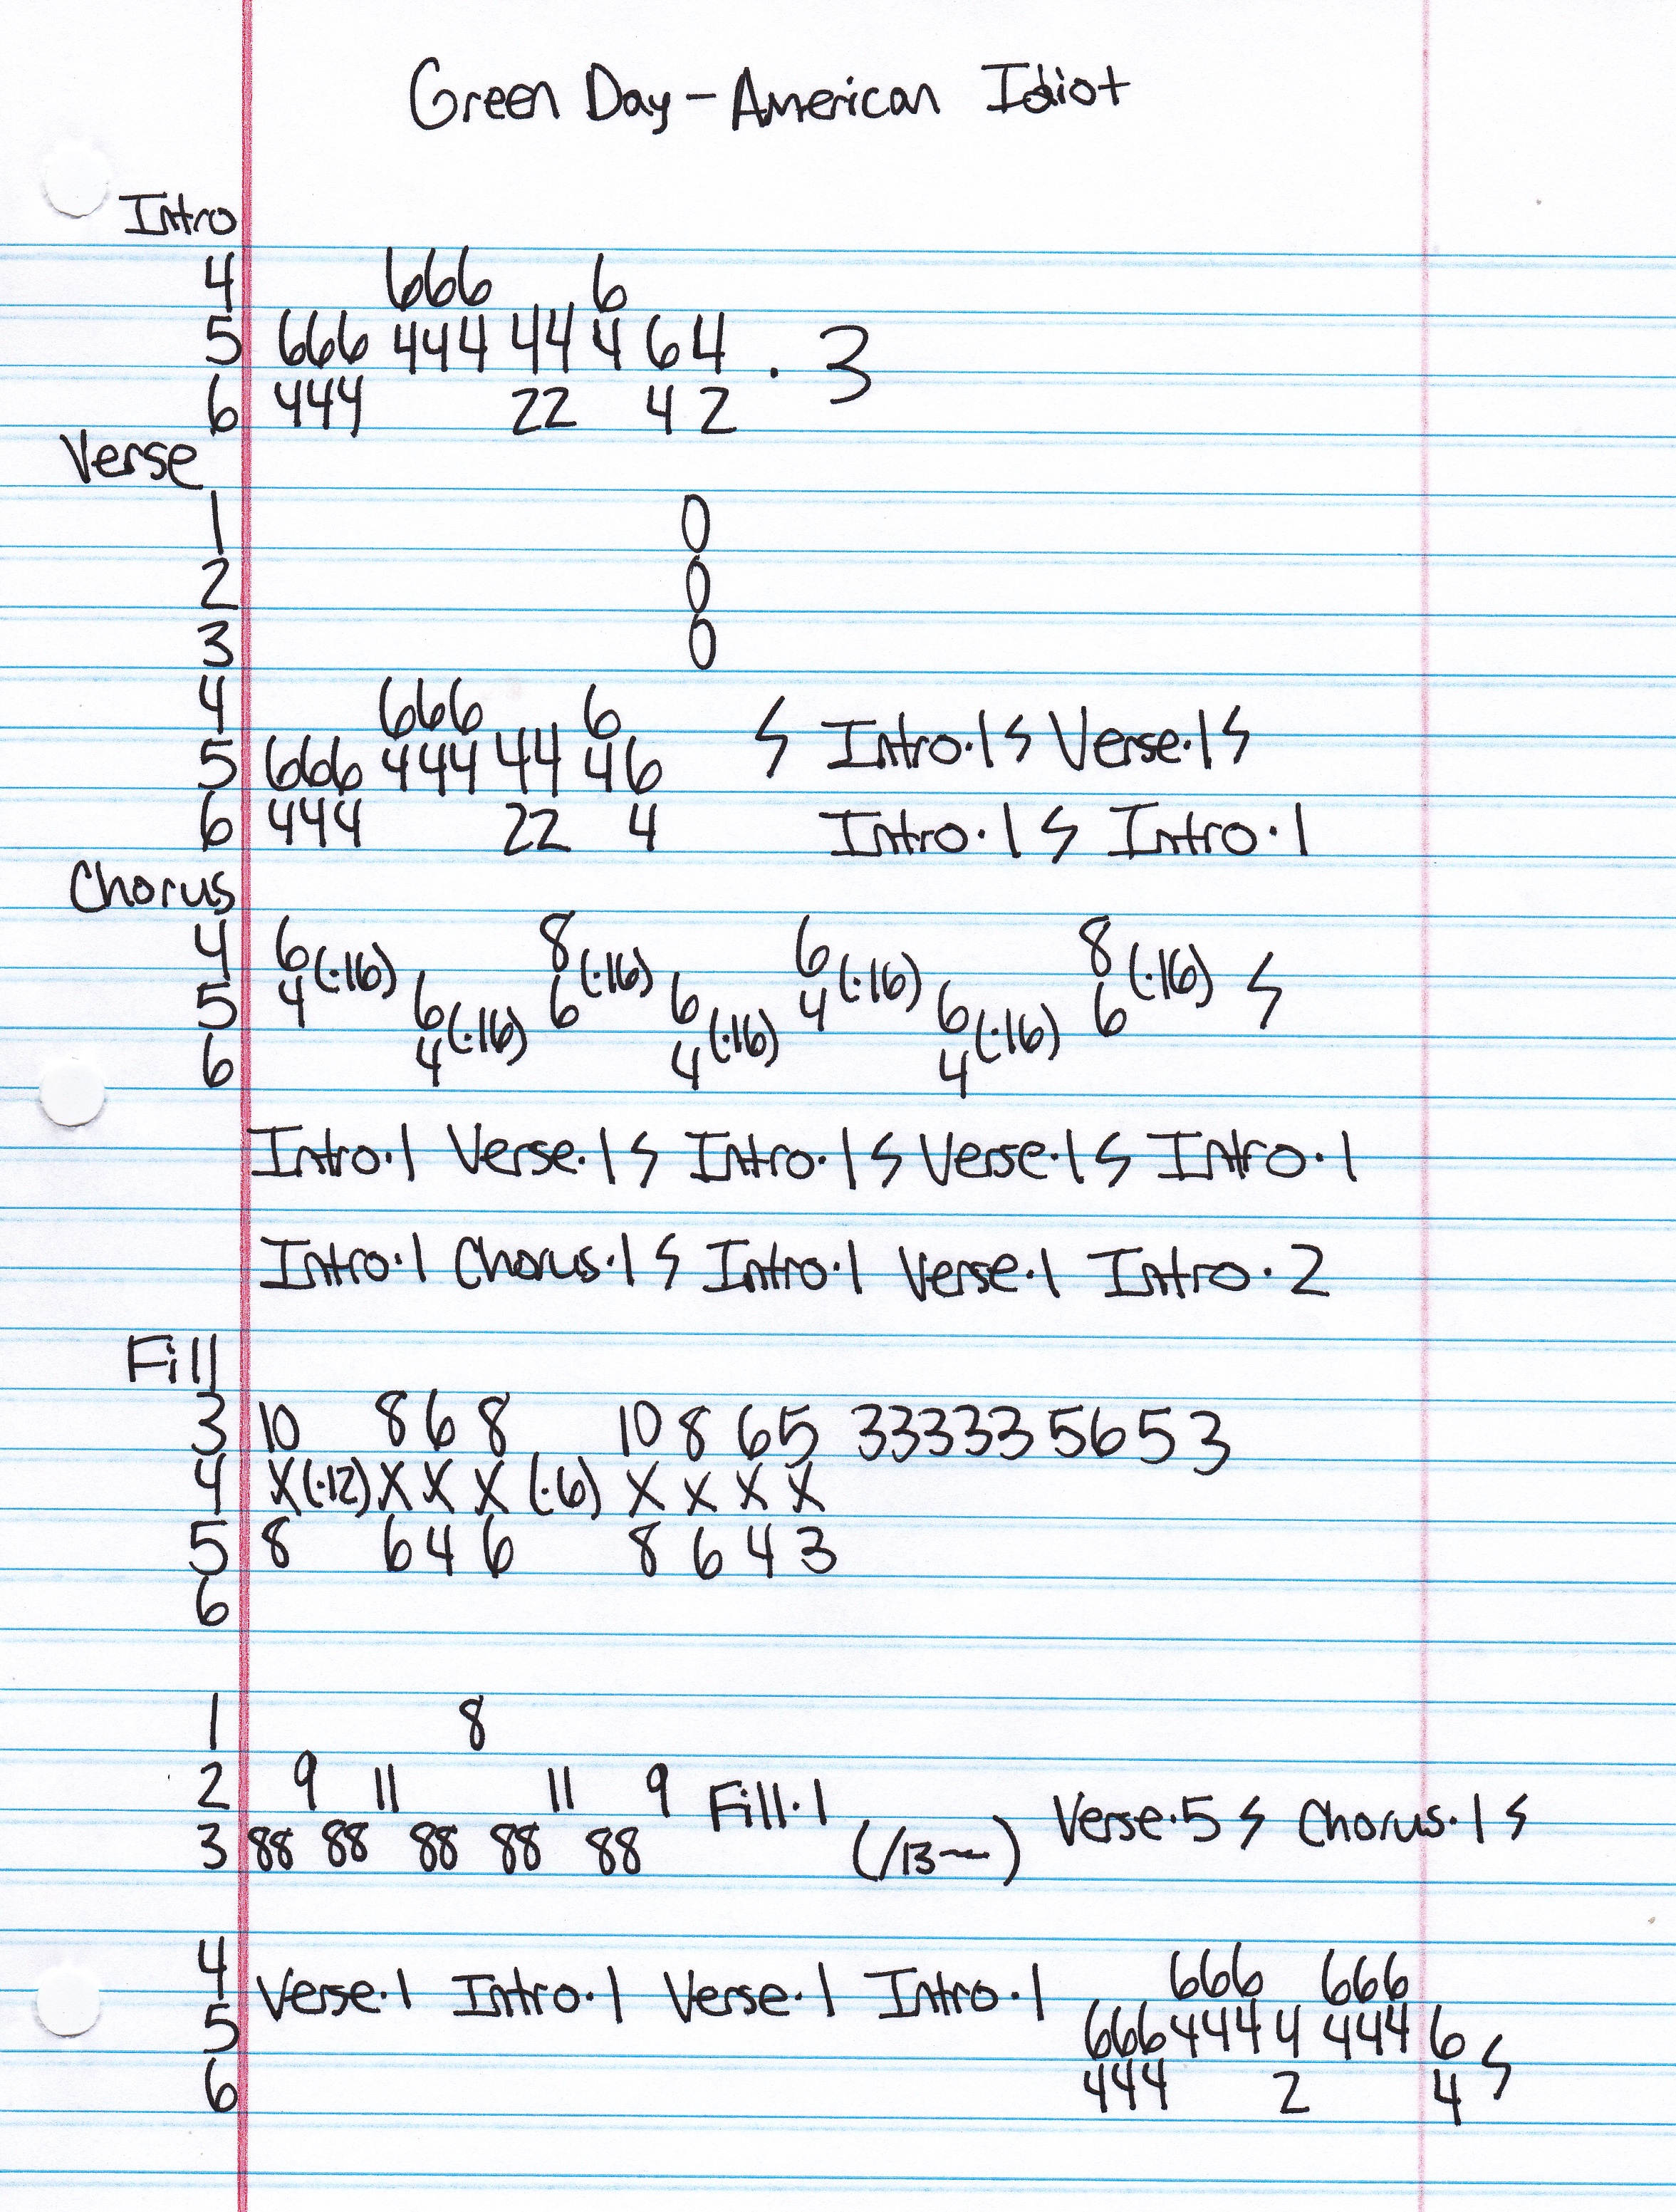 Green Day - American Idiot
Intro
4 666 6
5 666 444 44 4 6 4 . 3
6 444 22 4 2
Verse
1 0
2 0
3 0
4 666 6
5 666 444 44 4 6 ϟ Intro·1 ϟ Verse·1 ϟ
6 444 22 4 Intro·1 ϟ Intro·1
Chorus
4 6 (·16) 8 (·16) 6 (·16) 8 (·16) ϟ
5 4 6 (·16) 6 6 (·16) 4 6 (·16) 6
6 4 4 4
Intro·1 Verse·1 ϟ Intro·1 ϟ Verse·1 ϟ Intro·1
Intro·1 Chorus·1 ϟ Intro·1 Verse·1 Intro·2
Fill
3 10 8 6 8 10 8 6 5 33333 5 6 5 3
4 X (·12) X X X (·6) X X X X
5 8 6 4 6 8 6 4 3
6
1 8
2 9 11 11 9 Fill·1 Verse·5 ϟ Chorus·1 ϟ
3 88 88 88 88 88 (/13~)
4 666 666
Verse·1 Intro·1 Verse·1 Intro·1
5 666 444 4 444 6 ϟ
6 444 2 4